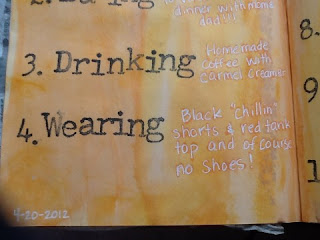 2. Eating
dinner with meme
dad's!!
3. Drinking
Homemade
coffee with
carmel creamer
4. Wearing
Black "chillin"
shorts & red tank
top and of course
no shoes!
4-20-2012
8.
9
1